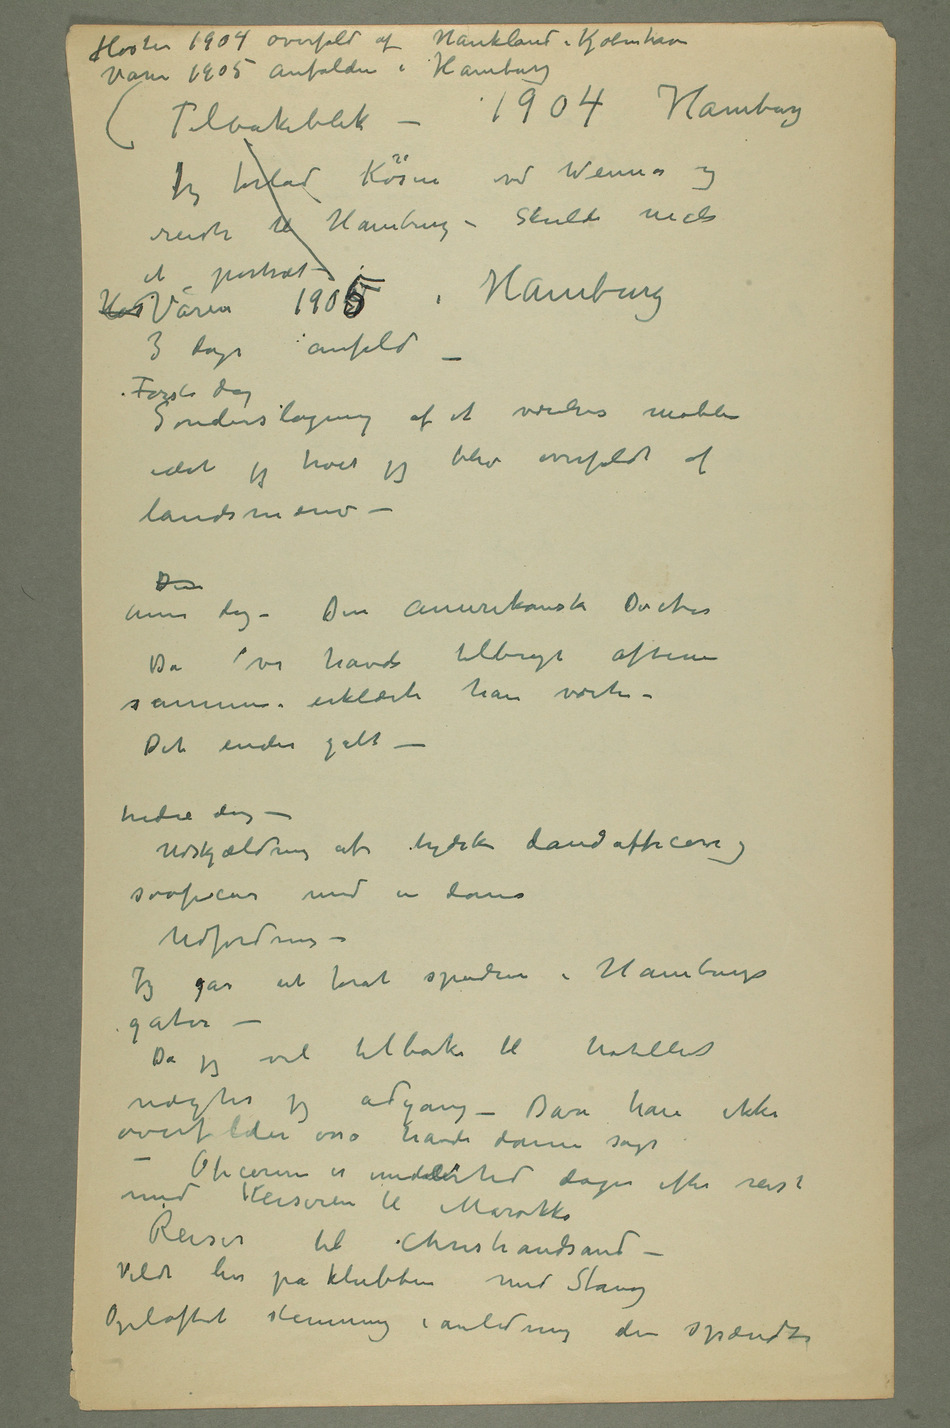 Høsten 1904 overfald af Haukland i Kjøbenhavn
Våren 1905 anfaldene i Hamburg
( Tilbakeblik – 1904 Hamburg
Jeg forlod Kösen ved Weimar og
reiste til Hamburg – Skulde male
et portræt –
Høs Våren 1905 i Hamburg
3 dages anfald –
Første dag
Sønderslagning af et værelses møbler
idet jeg tror jeg blir overfaldt af
landsmænd –
Den
annen dag – Den amerikanske Doctor
Da vi havde tilbragt aftenen
sammen erklærte han værten –
Det ender galt –
tredie dag –
Udskjældning af tydske landofficerer og
søoficerer med en dame
Udfordring –
Jeg går ut forat spadsere i Hamburgs
gater –
Da jeg vil tilbake til hotellet
nægtes jeg adgang – Bare han ikke
overfalder os havde damen sagt
– Oficererne er imidlertid dagen efter reist
med Keiseren til Marokko
Reiser til Christiandsand –
Vildt liv på klubben med Stang
Opløftet stemning i anledning den spændte